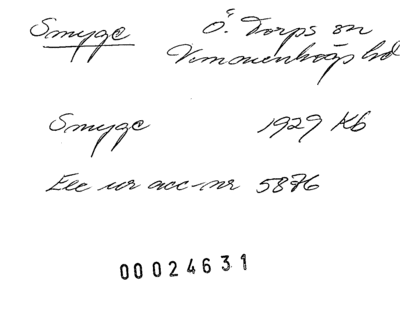 Smyge Ö. Torps sn
Vemmenhögs hd
Smyge 1929 Kb
Exc ur acc-nr 5876
00024631